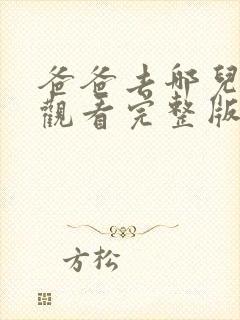 爸爸去哪兒
觀看完整版
方松